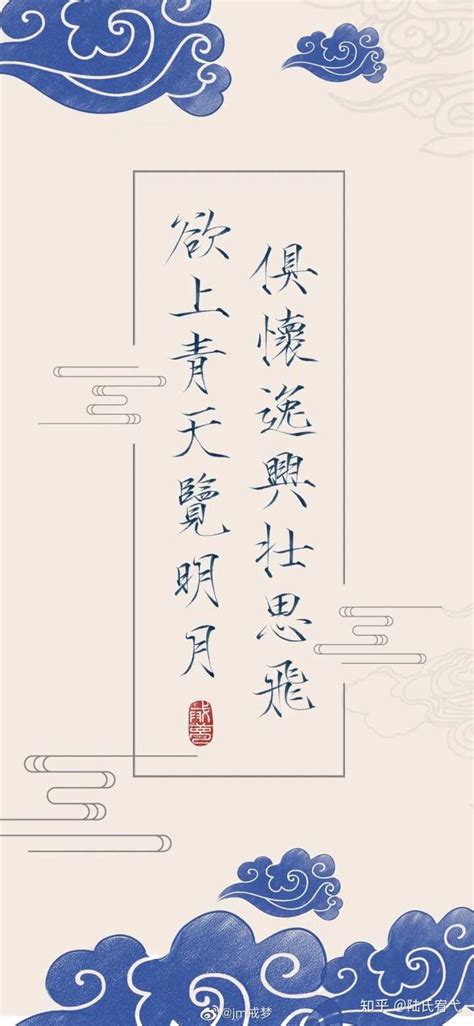 俱懷逸興壯思飛
欲上青天覽明月
戒夢
知乎 @陆氏宥弋
@jm戒梦